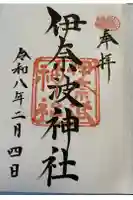 奉拝
伊奈波神社
令和八年二月四日